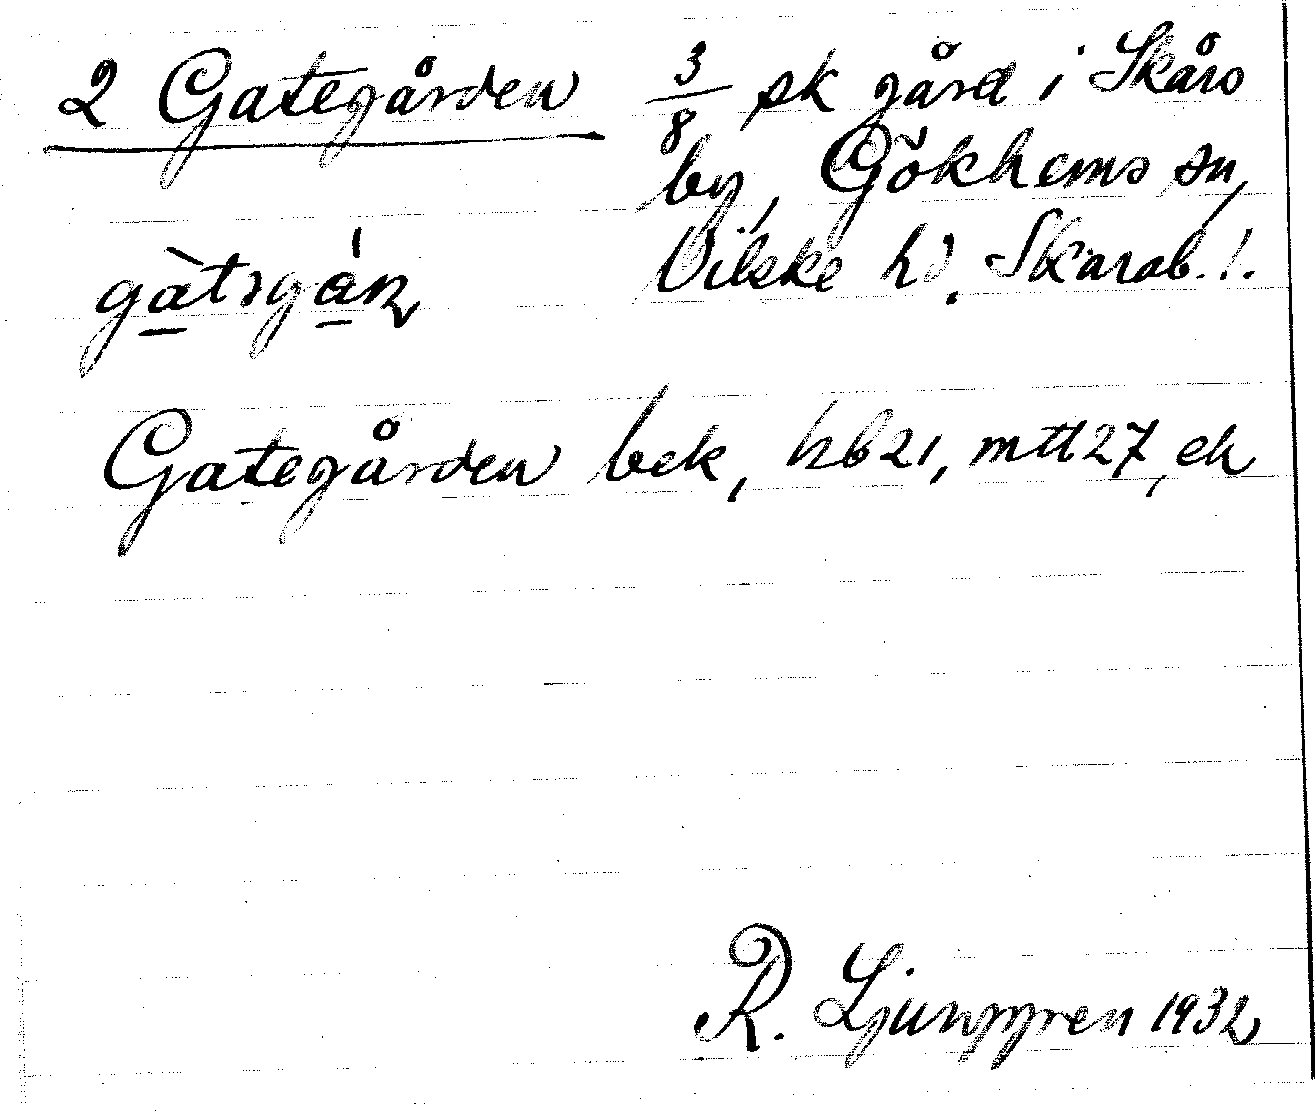 2 Gategården 3/8 sk gård i Skårs
by, Gökhems sn,
gàtəgán Vilske hd. Skarab. l.
Gategården bek, hb21, mtl27, ek
R. Ljunggren 1932